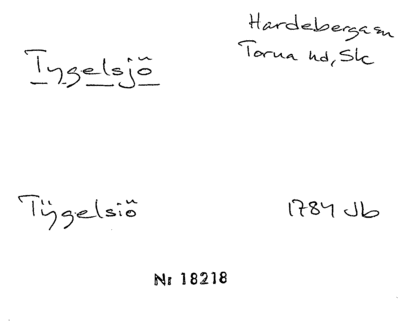 Hardeberga sn
Torna hd, Sk
Tygelsjö
Tÿgelsiö 1784 Jb
Nr 18218